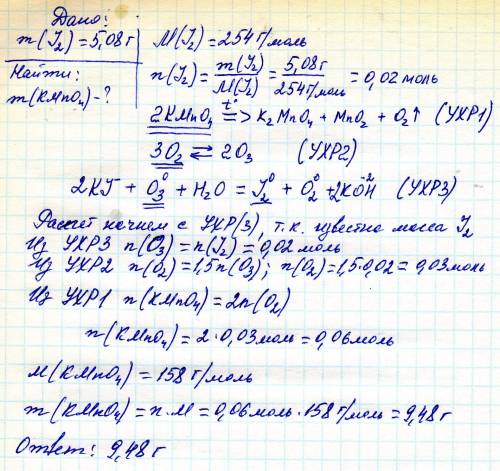 Дано:
m(J₂)=5,08г
M(J₂)=254г/моль
Найти:
m(KMnO₄)-?
n(J₂)= m(J₂)/M(J₂) = 5,08г/254г/моль = 0,02моль
2KMnO₄ =t°> K₂MnO₄ + MnO₂ + O₂↑ (УХР1)
3O₂ ⇄ 2O₃ (УХР2)
2KJ + O₃⁰ + H₂O = J₂⁰ + O₂⁰ + 2KOH⁻² (УХР3)
Расчет начнем с УХР(3), т.к. известна масса J₂
Из УХР3 n(O₃)=n(J₂)=0,02моль
Из УХР2 n(O₂)=1,5n(O₃); n(O₂)=1,5·0,02=0,03моль
Из УХР1 n(KMnO₄)=2n(O₂)
n(KMnO₄)=2·0,03моль=0,06моль
M(KMnO₄)=158г/моль
m(KMnO₄)=n·M=0,06моль·158г/моль=9,48г
Ответ: 9,48г